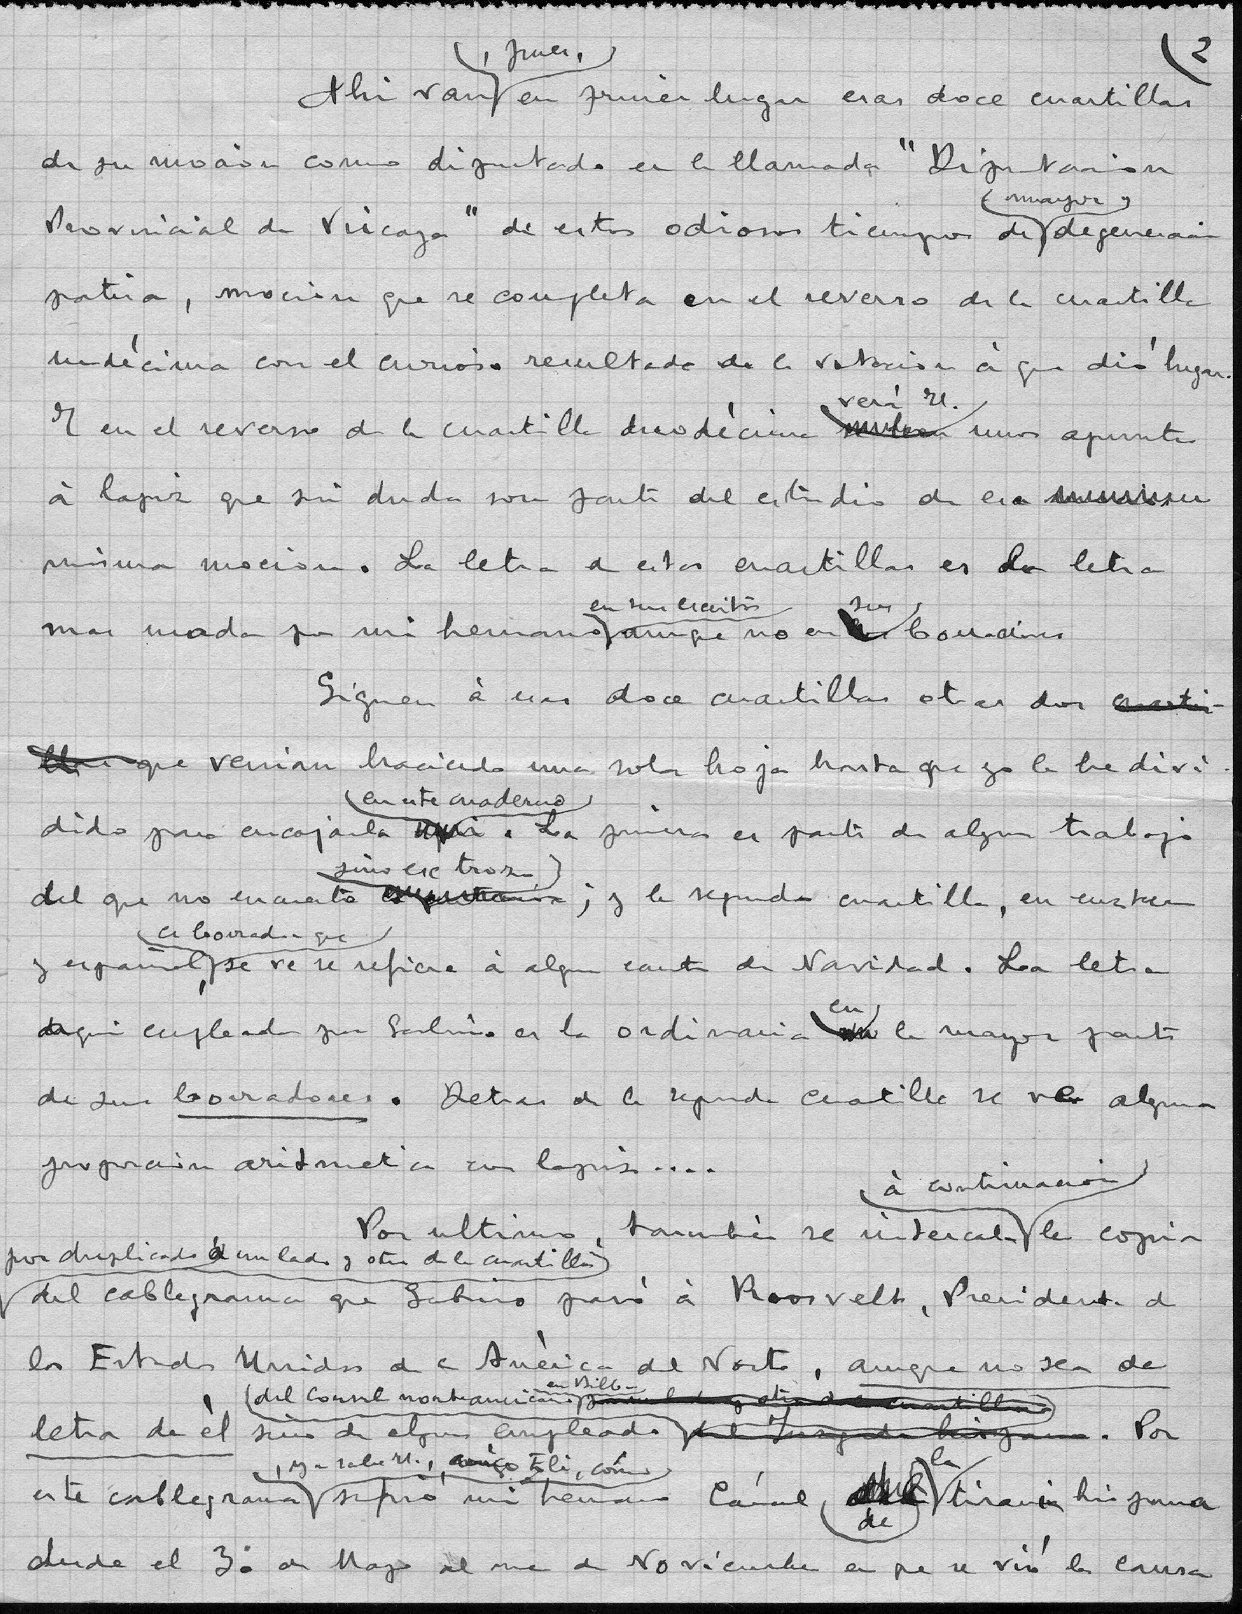 (2
, pues,
Ahí van en primer lugar esas doce cuartillas
de su moción como diputado en la llamada "Diputación
mayor
Provincial de Vizcaya" de estos odiosos tiempos de degeneración
patria, moción que se completa en el reverso de la cuartilla
undécima con el curioso resultado de la votación á que dió lugar.
verá U.
Y en el reverso de la cuartilla duodécima unos apuntes
á lapiz que sin duda son parte del estudio de esa
misma moción. La letra de estas cuartillas es la letra
en sus escritos sus
mas usada por mi hermano aunque no en borradores
Siguen á esas doce cuartillas otras dos cuarti-
llas que venian haciendo una sola hoja hasta que yo la he divi-
en este cuaderno
dido para encajarla aquí. La primera es parte de algun trabajo
sino ese trozo
del que no encuentro ; y la segunda cuartilla, en euzkera
es borrador que
y español, se ve se refiere á algun canto de Navidad. La letra
en
aquí empleada por Sabino es la ordinaria la mayor parte
de sus borradores. Detras de la segunda cuartilla se ve alguna
proporción aritmetica con lapiz....
á continuación
Por ultimo, también se intercala la copia
por duplicado á un lado y otro de la cuartilla
del cablegrama que Sabino pasó á Roosvelt, Presidente de
los Estados Unidos de la América del Norte, aunque no sea de
del Consul norteamericano en Bilbao
letra de él sino de algun empleado . Por
, ya sabe U., amigo Eli, cómo la
este cablegrama sufrió mi hermano Cárcel de tirania hispana
de
desde el 30 de Mayo al mes de Noviembre en que se vió la causa